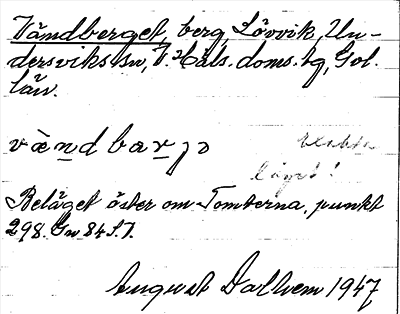 Vändberget, berg, Lövvik, Un-
dersviks sn, V. Häls. doms. hg, Gvl.
län.
vä̀ndbarjə
läget!
Beläget öster om Tomterna, punkt
298. Gn 84 S.T.
August Dalhem 1947